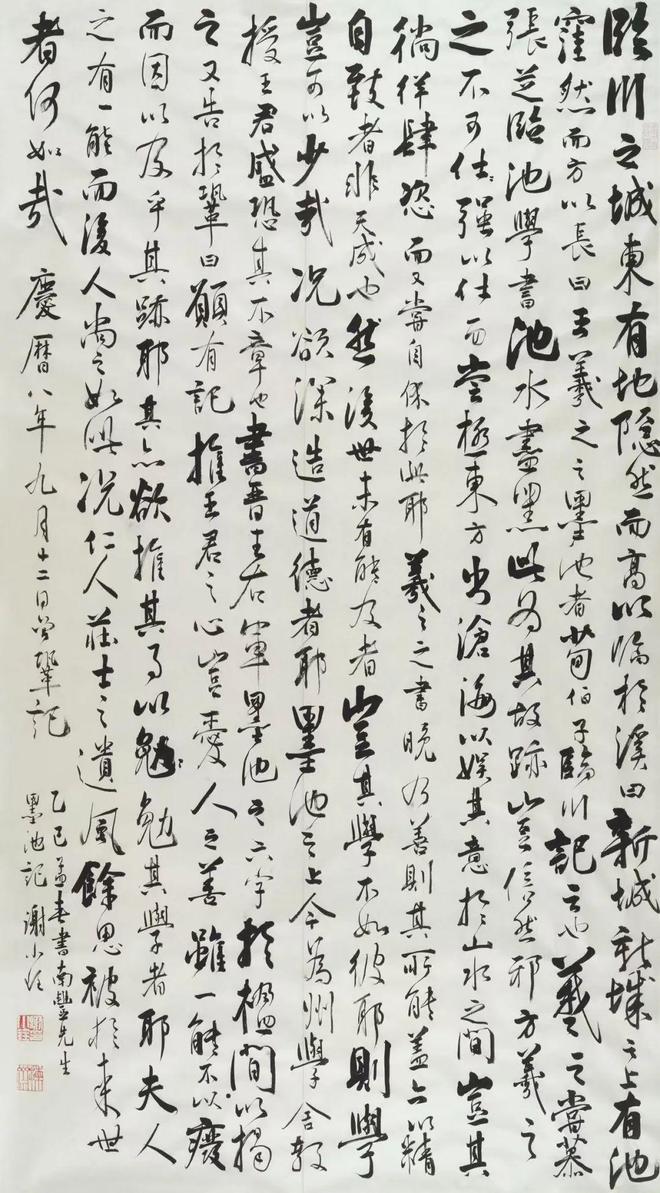 臨川之城東有地隱然而高以臨於溪曰新城新城之上有池
窪然而方以長曰王羲之之墨池者荀伯子臨川記云也羲之嘗慕
張芝臨池學書池水盡黑此為其故跡豈信然邪方羲之
之不可仕强以仕而嘗極東方出滄海以娛其意於山水之間豈其
徜徉肆恣而又嘗自休於此耶羲之之書晚乃善則其所能蓋亦以精
自致者非天成也然後世未有能及者豈其學不如彼耶則學
豈可以少哉况欲深造道德者耶墨池之上今為州學舍教
授王君盛恐其不章也書晉王右軍墨池之六字於楹間以揭
之又告於鞏曰願有記推王君之心豈愛人之善雖一能不以廢
而因以及乎其跡耶其亦欲推其事以勉勉其學者耶夫人
之有一能而後人尚之如此况仁人莊士之遺風餘思被於來世
者何如哉 慶曆八年九月十二日曾鞏記
乙巳孟春書南豐先生
墨池記 謝小